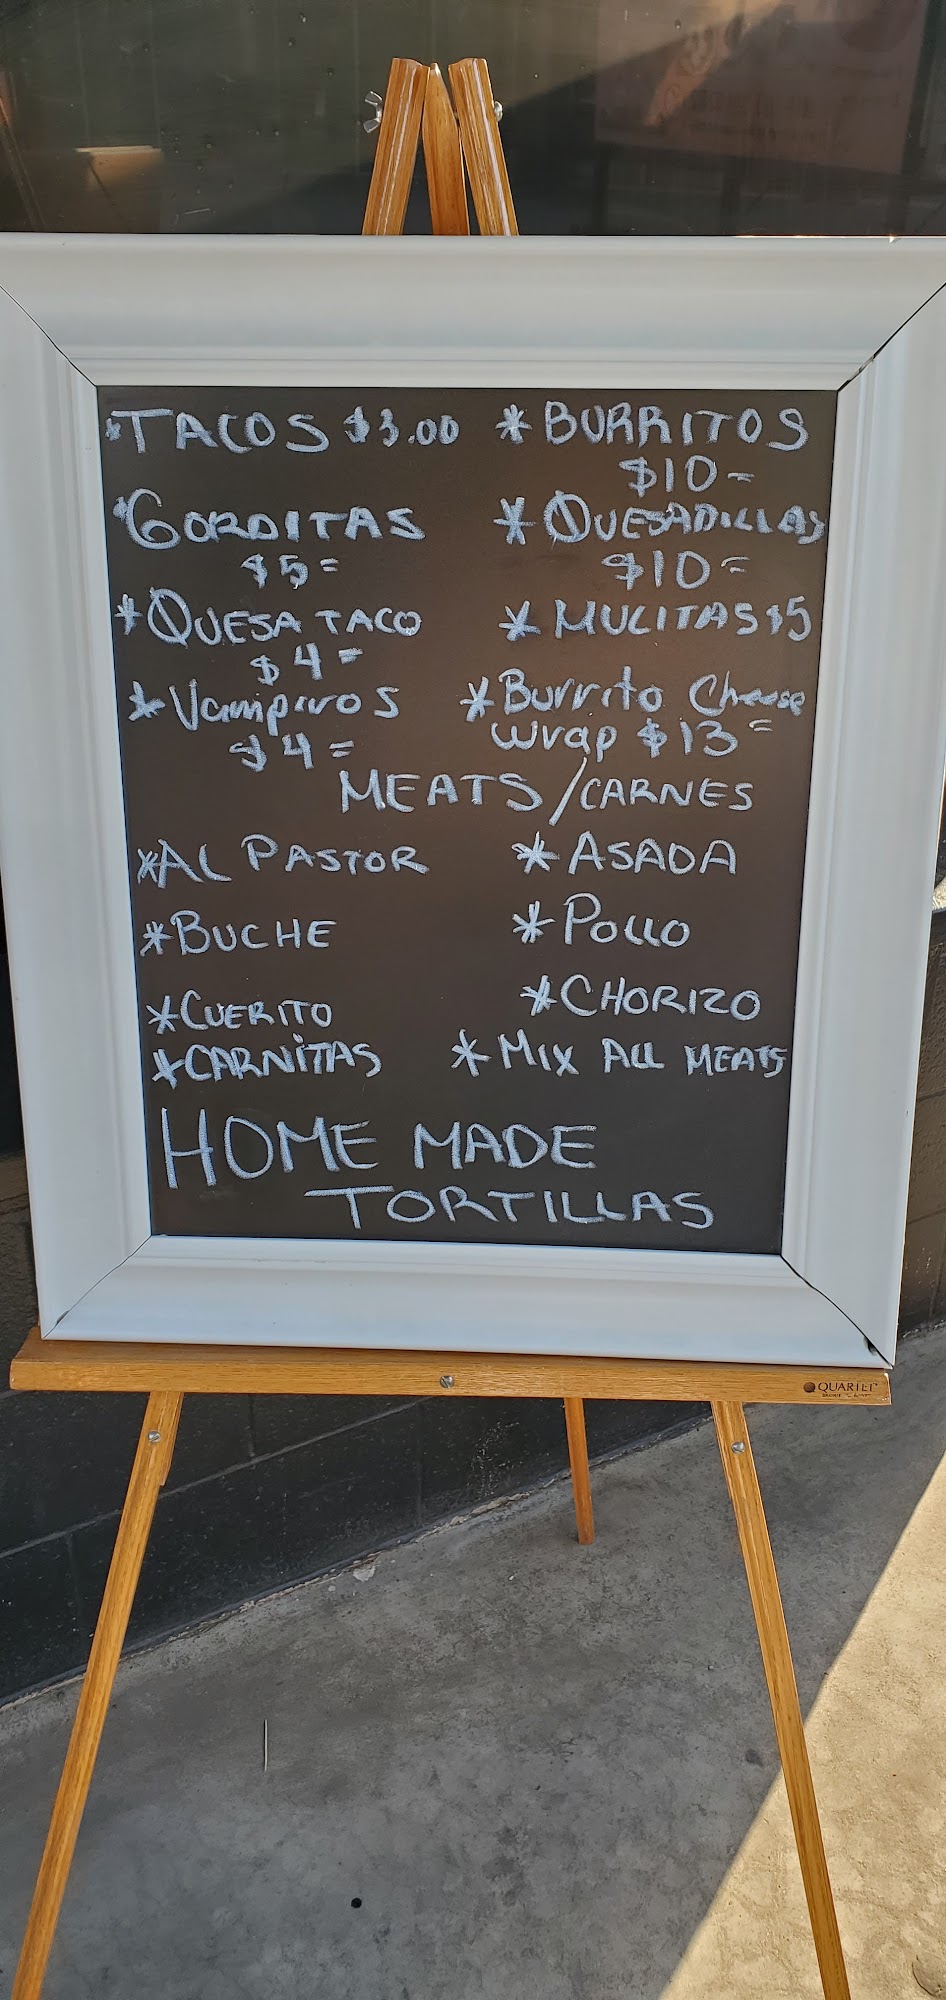 *TACOS $3.00
*BURRITOS
$10=
*GORDITAS
$5=
*QUESADILLAS
$10=
*QUESA TACO
$4=
*MULITAS $5
*Vampiros
$4=
*Burrito Cheese
wrap $13=
MEATS/CARNES
*AL PASTOR
*ASADA
*BUCHE
*POLLO
*CUERITO
*CHORIZO
*CARNITAS
*MIX ALL MEATS
HOME MADE
TORTILLAS
QUARTET